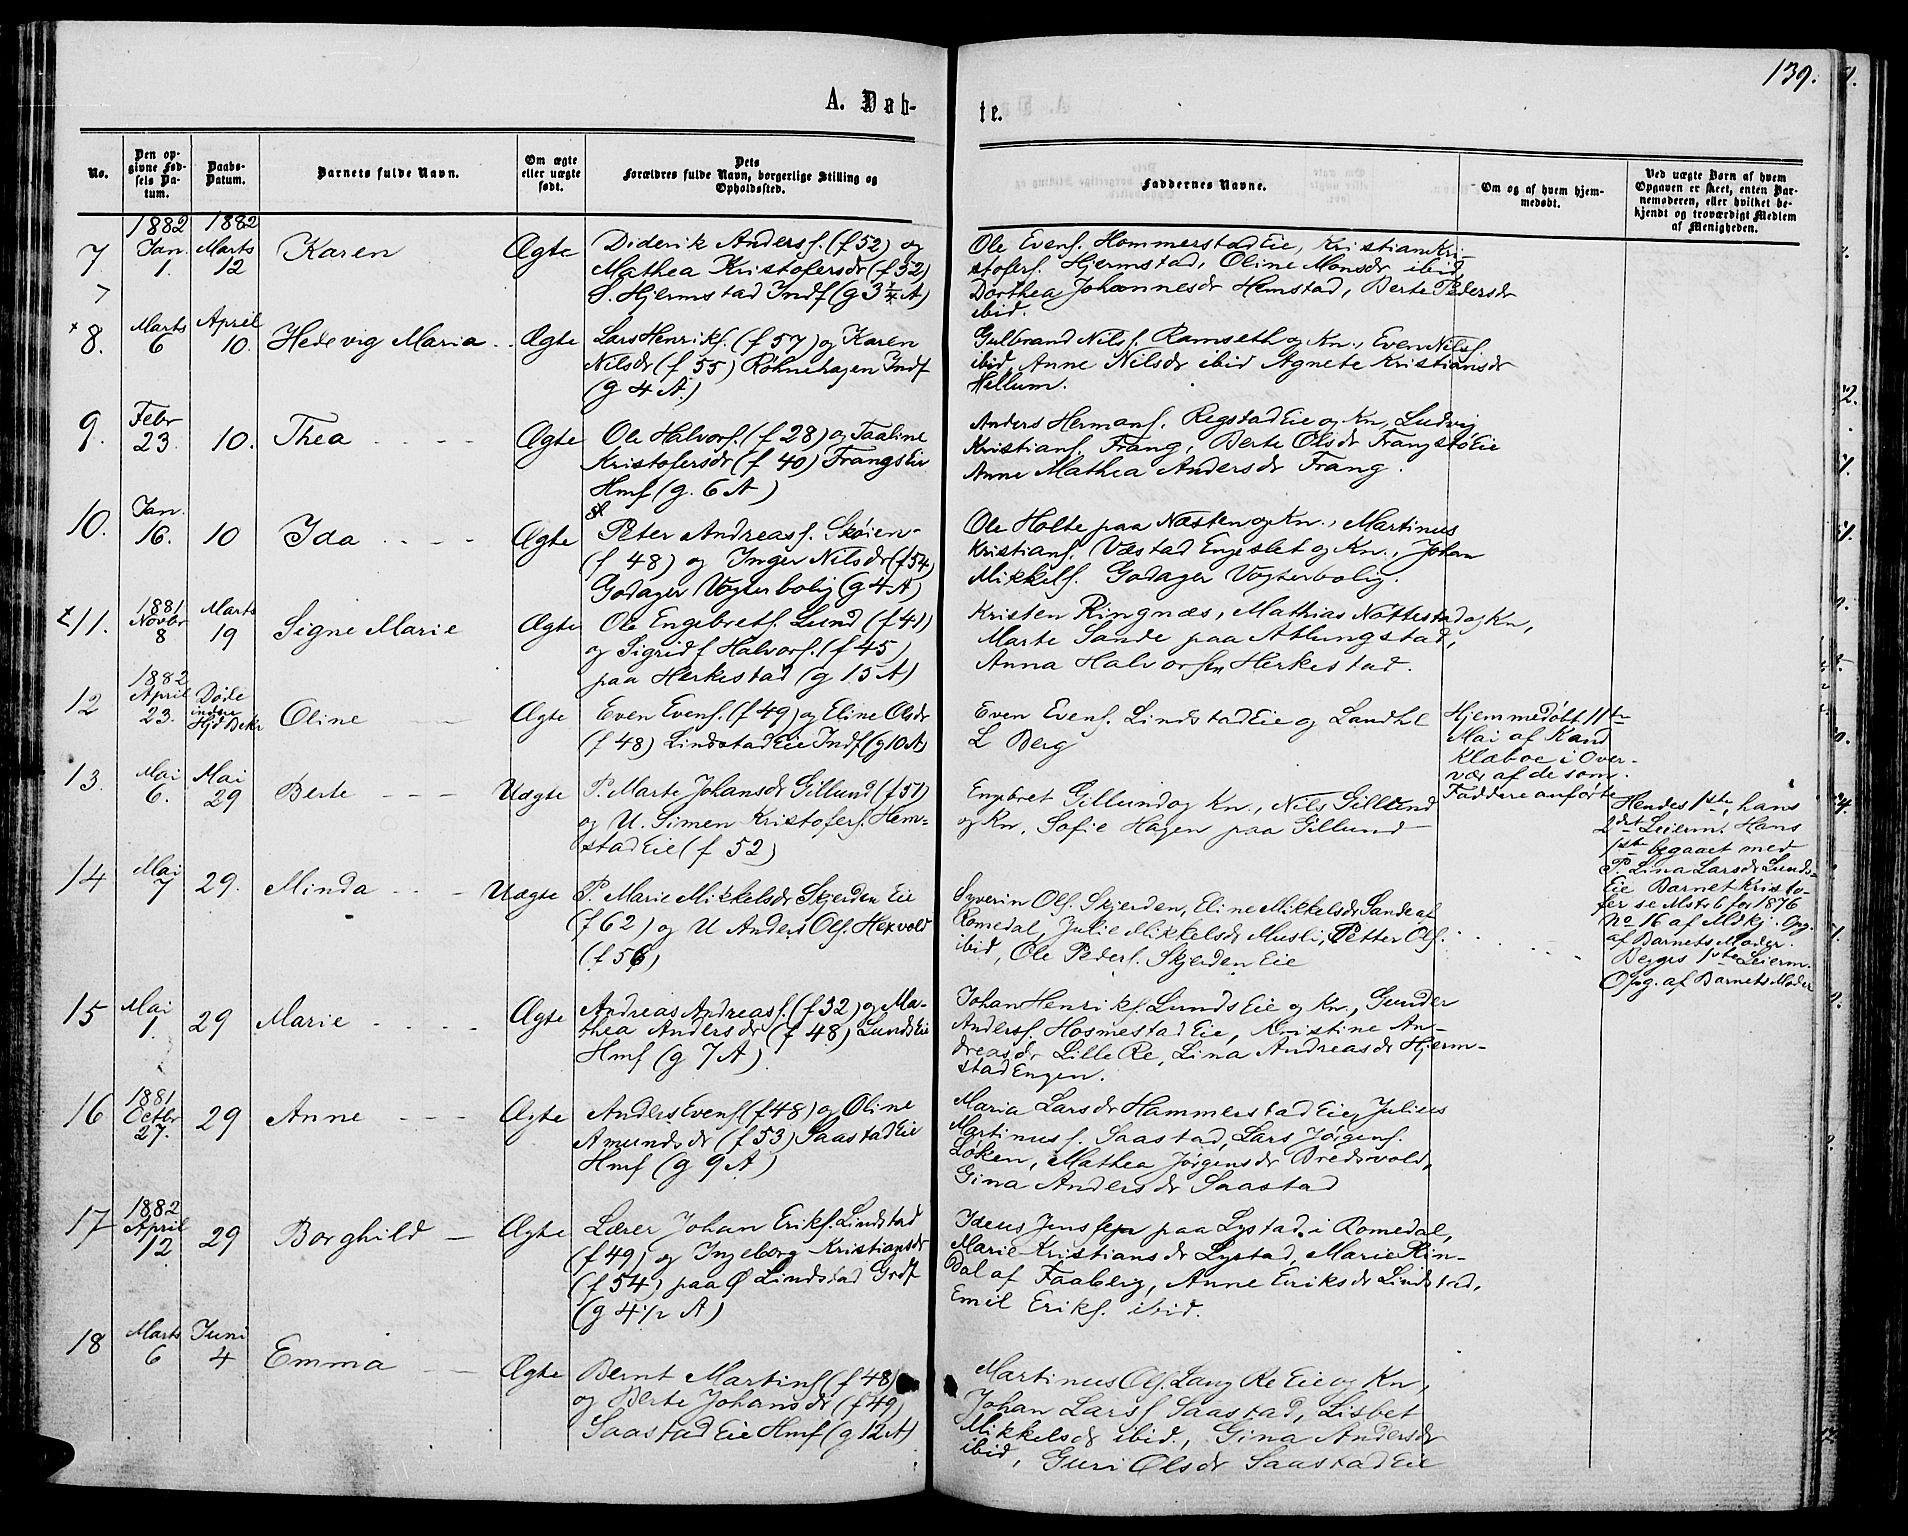 139.
A. Døb-
te.
No.
Den op-
givne Fød-
sels Da-
tum.
Daabs-
Datum.
Barnets fulde Navn.
Om ægte
eller uægte
født.
Dets
Forældres fulde Navn, borgerlige Stilling og
Opholdssted.
Faddernes Navne.
Om og af hvem hjem-
medøbt.
Ved uægte Børn af hvem
Opgaven er skeet, enten Bar-
nemoderen, eller hvilket be-
kjendt og troværdigt Medlem
af Menigheden.
7
1882
Jan.
1.
1882
Marts
12
Karen
Ægte
Diderik Anders. (f 52) og
Mathea Kristofersdr (f 52)
S. Hjermstad Indf (g 3 A)
Ole Evens. Hommerstad Eie, Kristian Kri-
stofers. Hjermstad, Oline Monsdr ibid,
Dorthea Johannesdr Hemstad, Berte Pedersdr
ibid.
8.
Marts
6
April
10.
Hedevig Maria
Ægte
Lars Henriks. (f 57) og Karen
Nilsdr (f 55) Røhnehagen Indf
(g 4 A.)
Gulbrand Nils. Ramseth og Kn., Even Nils.
ibid, Anne Nilsdr ibid Agnete Kristiansdr
Hellum.
9.
Febr
23.
10.
Thea
Ægte
Ole Halvors. (f 28) og Taaline
Kristofersdr (f 40) Frangs Eie
Hmf (g. 6 A)
Anders Hermans. Regstad Eie og Kn, Ludvig
Kristians. Frang, Berte Olsdr Frangs Eie
Anne Mathea Andersdr Frang.
10.
Jan.
16.
10
Ida
Ægte
Peter Andreas. Skøien
(f 48) og Inger Nilsdr (f 54)
Godager Vogterbolig (g 4 A)
Ole Holte paa Næsten og Kn., Martinus
Kristians. Væstad Engeslet og Kn., Johan
Mikkels. Godager Vogterbolig.
11.
1881
Novbr
8
Marts
19
Signe Marie
Ægte
Ole Engebrets. Lund (f 41)
og Sigrid Halvors. (f 45)
paa Herkestad (g 15 A)
Kristen Ringnæs, Mathias Nøttestad og Kn,
Marte Sande paa Atlungstad,
Anna Halvorsen Herkestad.
12
1882
April
23.
Døde
inden
Oline
Ægte
Even Evens. (f 49) og Eline Olsdr
(f 48) Lindstad Eie Indf (g 10 A)
Even Evens. Lindstad Eie og Landh.
L Berg
Hjemmedøbt 11te
Mai af Kand
Klaboe i Over-
vær af de som
Faddere anførte
13.
Mai
6.
Mai
29
Berte
Uægte
P. Marte Johansdr Gillund (f 51)
og U. Simen Kristofers. Hem-
stad Eie (f 52)
Engebret Gillund og Kn., Nils Gillund
og Kn, Sofie Hagen paa Gillund
Hendes 1ste, hans
2det Leierm. Hans
1ste begaaet med
P. Lina Larsdr Lunds-
Eie Barnet Kristo-
fer se Mstr 6 for 1876
No 16 af Mdkj. Opg.
af Barnets Moder.
14
Mai
7
29.
Minda
Uægte
P. Marie Mikkelsdr Skjerden Eie
(f 62) og U Anders Ols. Hexvold
(f 56)
Syverin Ols. Skjerden, Eline Mikkelsdr Sande af
Romedal, Julie Mikkelsdr Musli, Petter Ols.
ibid, Ole Peders. Skjerden Eie
Begges 1ste Leierm.
Opg. af Barnets Moder
15
Mai
1.
29
Marie
Ægte
Andreas Andreas. (f 32) og Ma-
thea Andersdr (f 48) Lunds Eie
Hmf (g 7 A)
Johan Henriks. Lunds Eie og Kn, Gunder
Anders. Hosmestad Eie, Kristine An-
dreasdr Lille Re, Lina Andreasdr Hjerm-
stad Engen.
16
1881
Octbr
27.
29
Anne
Ægte
Anders Evens. (f 48) og Oline
Amundsdr (f 53) Saastad Eie
Hmf (g 9 A)
Maria Larsdr Hammerstad Eie, Julius
Martinus. Saastad, Lars Jørgens.
Løken, Mathea Jørgensdr Bredvold,
Gina Andersdr Saastad
17
1882
April
12
29
Borghild
Ægte
Lærer Johan Eriks. Lindstad
(f 49) og Ingeborg Kristiansdr
(f 54) paa Ø Lindstad Grdf
(g 4½ A)
Ideus Jenssen paa Lystad i Romedal,
Marie Kristiansdr Lystad, Marie Rin-
dal af Faaberg, Anne Eriksdr Lindstad,
Emil Eriks. ibid.
18
Marts
6
Juni
4
Emma
Ægte
Bernt Martins. (f 48)
og Berte Johansdr (f 49)
Saastad Eie Hmf (g 12 A)
Martinus Ols. Lang Re Eie og Kn,
Johan Lars. Saastad, Lisbet
Mikkelsdr ibid., Gina Andersdr
ibid, Guri Olsdr Saastad Eie